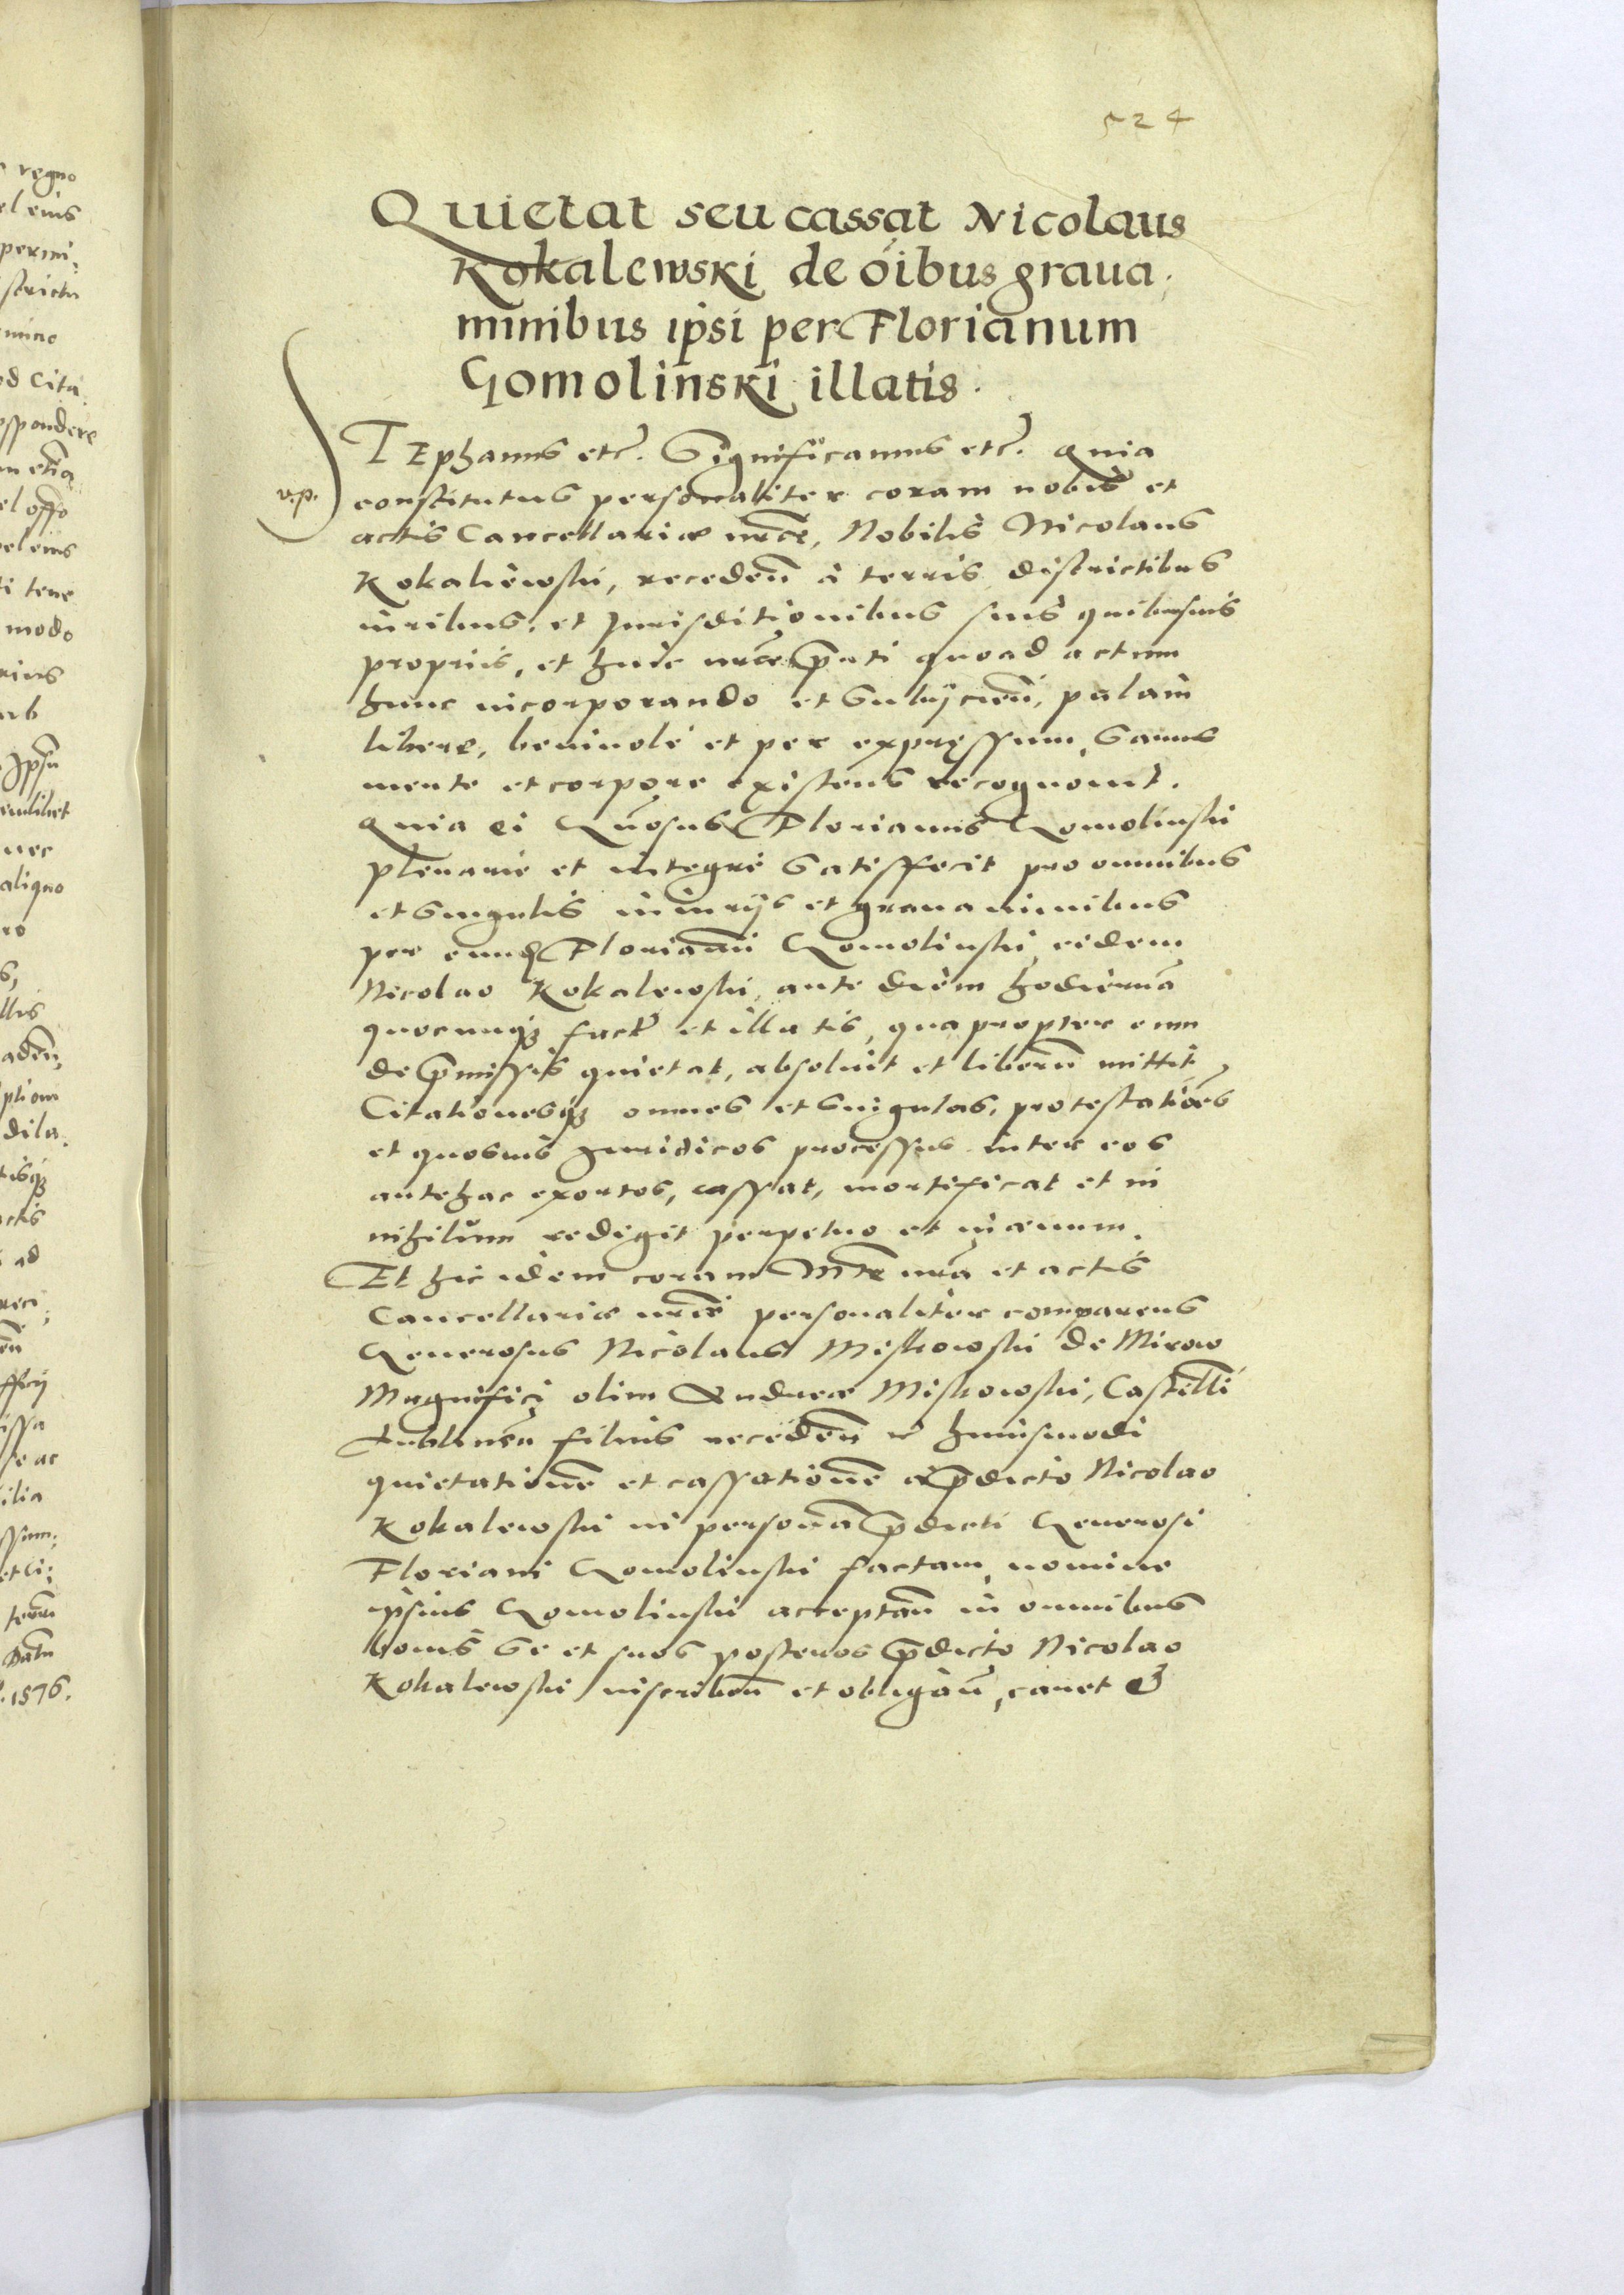 524
Quietat seu cassat Nicolaus
Kokalewski de oĩbus graua,
minibus ipsi per Florianum
Gomolinski illatis.
STEphanus etc. Significamus etc. Quia
v.p.
constitutus personaliter coram nobis et
actis Cancellariæ nr̃æ, Nobilis Nicolaus
Kokalewski, recedeñ à terris districtibus
iuribus, et Jurisditionibus suis quibusuis
proprijs, et huic nr̃æ p̃nti quoad actum
hunc incorporando et Subÿcieñ, palam
libere, beniuole et per expressum, Sanus
mente et corpore existens recognouit.
Quia ei Gñosus Florianus Gomolinski
plenarie et integre Satisffecit pro omnibus
et Singulis iniurijs et grauaminibus
per eundẽ Florianũ Gomolinski eidem
Nicolao Kokalewski, ante diem hodiernã
quocunqȝ fact et illatis, quapropter eum
de p̃missis quietat, absoluit et liberũ mittit,
Citationesqȝ omnes et Singulas, protestatioẽs
et quosuis Juridicos processus inter eos
antehac exortos, cassat, mortificat et in
nihilum redigit perpetuo et in æuum.
Et hic idem coram Mte nr̃a et actis
Cancellariæ nr̃æ personaliter comparens
Generosus Nicolaus Miskowski de Mirow
Magnifici olim Andreæ Miskowski, Castelli
Lublineñ filius recedeñ ut huiusmodi
quietationẽ et cassationẽ à p̃dicto Nicolao
Kokalewski in personã p̃dicti Generosi
Floriani Gomolinski factam, nomine
ipsius Gomolinski acceptañ in omnibus
bonis Se et suos posteros p̃dicto Nicolao
Kokalewski inscribeñ et obligañ, cauet
regno
el eius
permi,
strictu
od Cita,
spondere
el offo
vel eius
ti tene
modo
nec
aliquo
ptiom
dila,
ad
ilia
et li,
1576.